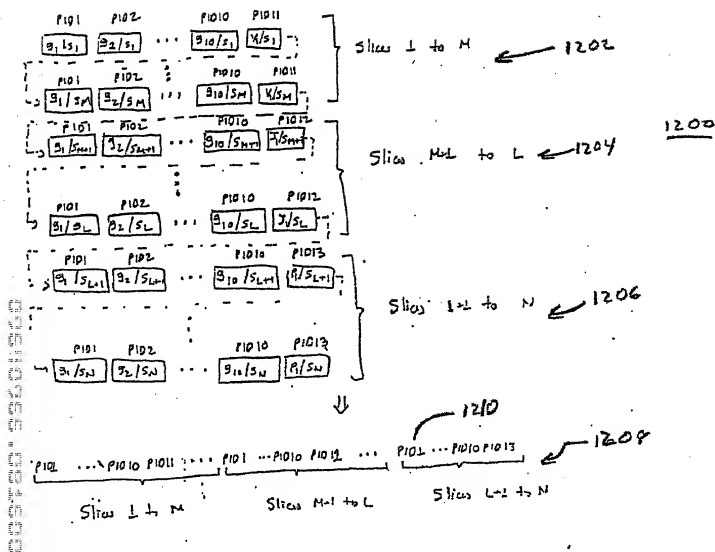 PID1 PID2 PID10 PID11
g1/s1 g2/s1 ... g10/s1 v1/s1 Slices 1 to M 1202
PID1 PID2 PID10 PID11
g1/sM g2/sM ... g10/sM v1/sM
1200
PID1 PID2 PID10 PID12
g1/sM+1 g2/sM+1 g10/sM+1 /sM+1 Slices M+1 to L 1204
PID1 PID2 PID10 PID12
g1/sL g2/sL ... g10/sL /sL
PID1 PID2 PID10 PID13
g1/sL+1 g2/sL+1 ... g10/sL+1 p1/sL+1 Slices L+1 to N 1206
PID1 PID2 PID10 PID13
g1/sN g2/sN ... g10/sN p1/sN
⇓
1210
PID1 ... PID10 PID11 ... PID1 ... PID10 PID12 ... PID1 ... PID10 PID13 1208
Slices 1 to M Slices M+1 to L Slices L+1 to N